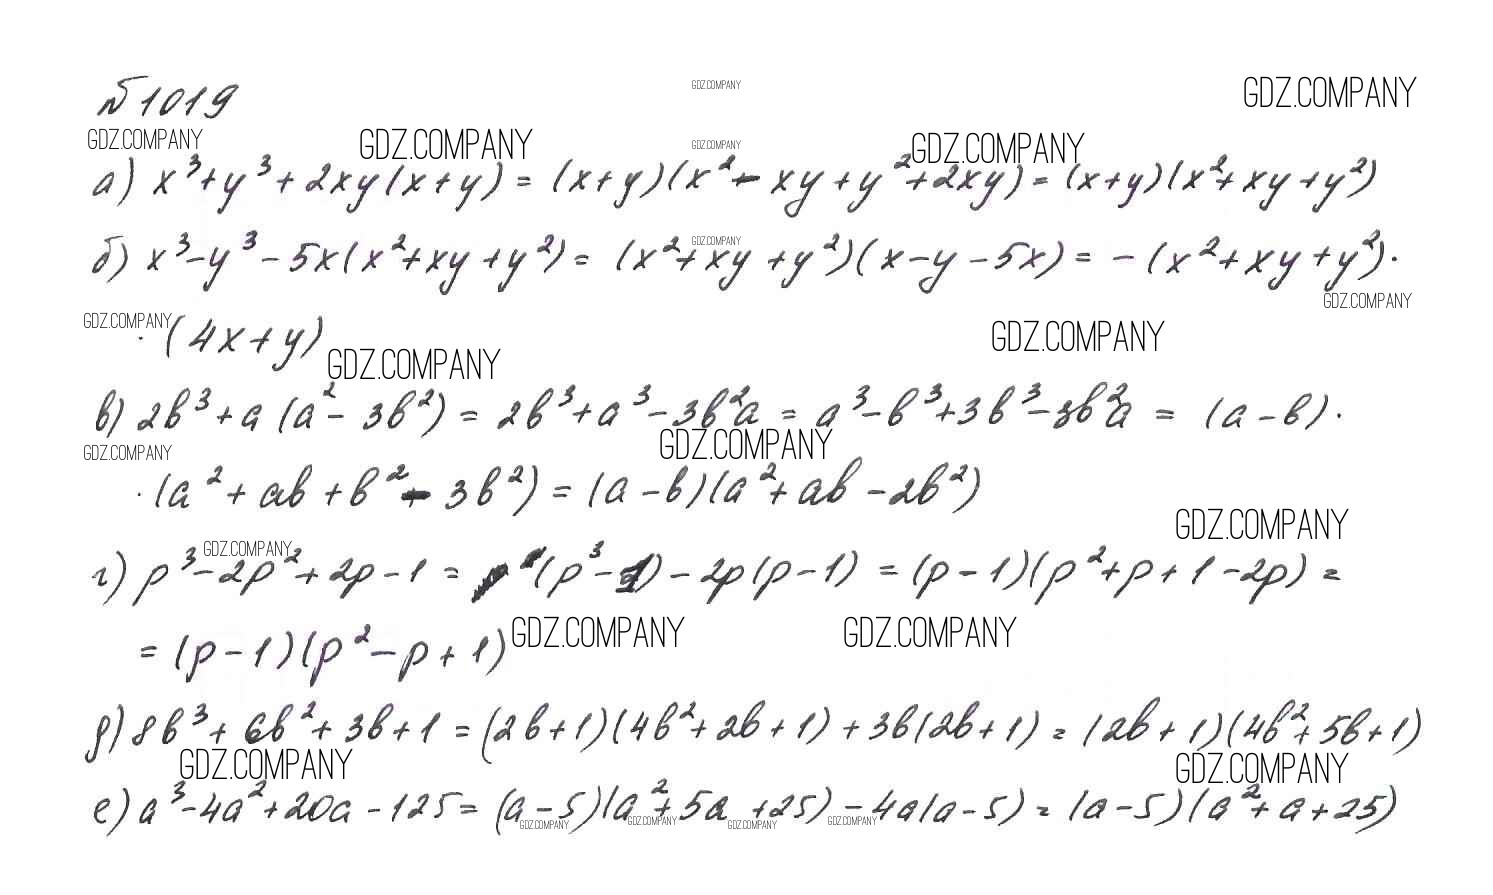 №1019
GDZ.COMPANY GDZ.COMPANY
GDZ.COMPANY GDZ.COMPANY GDZ.COMPANY GDZ.COMPANY
а) x³+y³+2xy(x+y) = (x+y)(x²-xy+y²+2xy) = (x+y)(x²+xy+y²)
б) x³-y³-5x(x²+xy+y²) = (x²+xy+y²)(x-y-5x) = -(x²+xy+y²)·
GDZ.COMPANY GDZ.COMPANY
GDZ.COMPANY GDZ.COMPANY
·(4x+y)
GDZ.COMPANY
в) 2b³+a(a²-3b²) = 2b³+a³-3b²a = a³-b³+3b³-3b²a = (a-b)·
GDZ.COMPANY GDZ.COMPANY
·(a²+ab+b²-3b²) = (a-b)(a²+ab-2b²)
GDZ.COMPANY
GDZ.COMPANY
г) p³-2p²+2p-1 = (p³-1)-2p(p-1) = (p-1)(p²+p+1-2p) =
GDZ.COMPANY GDZ.COMPANY
= (p-1)(p²-p+1)
д) 8b³+6b²+3b+1 = (2b+1)(4b²+2b+1)+3b(2b+1) = (2b+1)(4b²+5b+1)
GDZ.COMPANY GDZ.COMPANY
е) a³-4a²+20a-125 = (a-5)(a²+5a+25)-4a(a-5) = (a-5)(a²+a+25)
GDZ.COMPANY GDZ.COMPANY GDZ.COMPANY GDZ.COMPANY